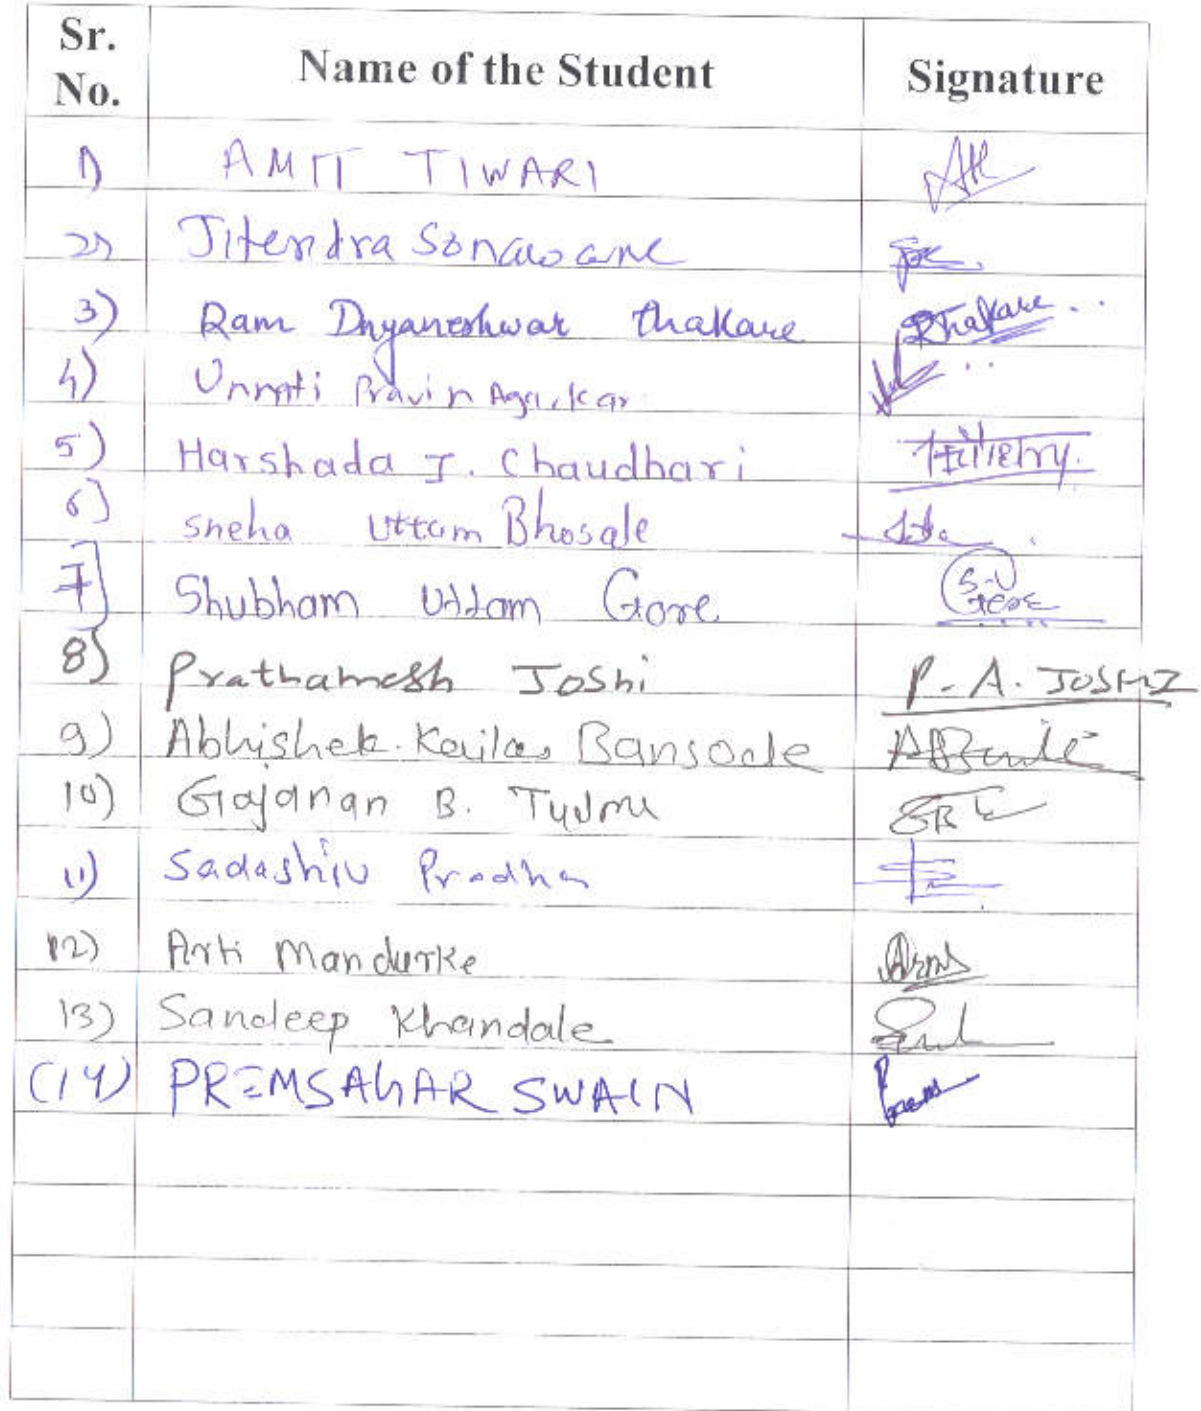 Sr. No. Name of the Student Signature
1) AMIT TIWARI
2) Jitendra Sonawane
3) Ram Dnyaneshwar thakare Rthakare
4) Unnati Pravin Agarkar
5) Harshada I. Chaudhari
6) sneha Uttam Bhosale
7) Shubham Uttam Gore S.U Gore
8) Prathamesh Joshi P. A. JOSHI
9) Abhishek Kailas Bansode
10) Gajanan B.
11) Sadashiv Pradhan
12) Arti Mandurke
13) Sandeep Khandale
(14) PREMSAGAR SWAIN Prem